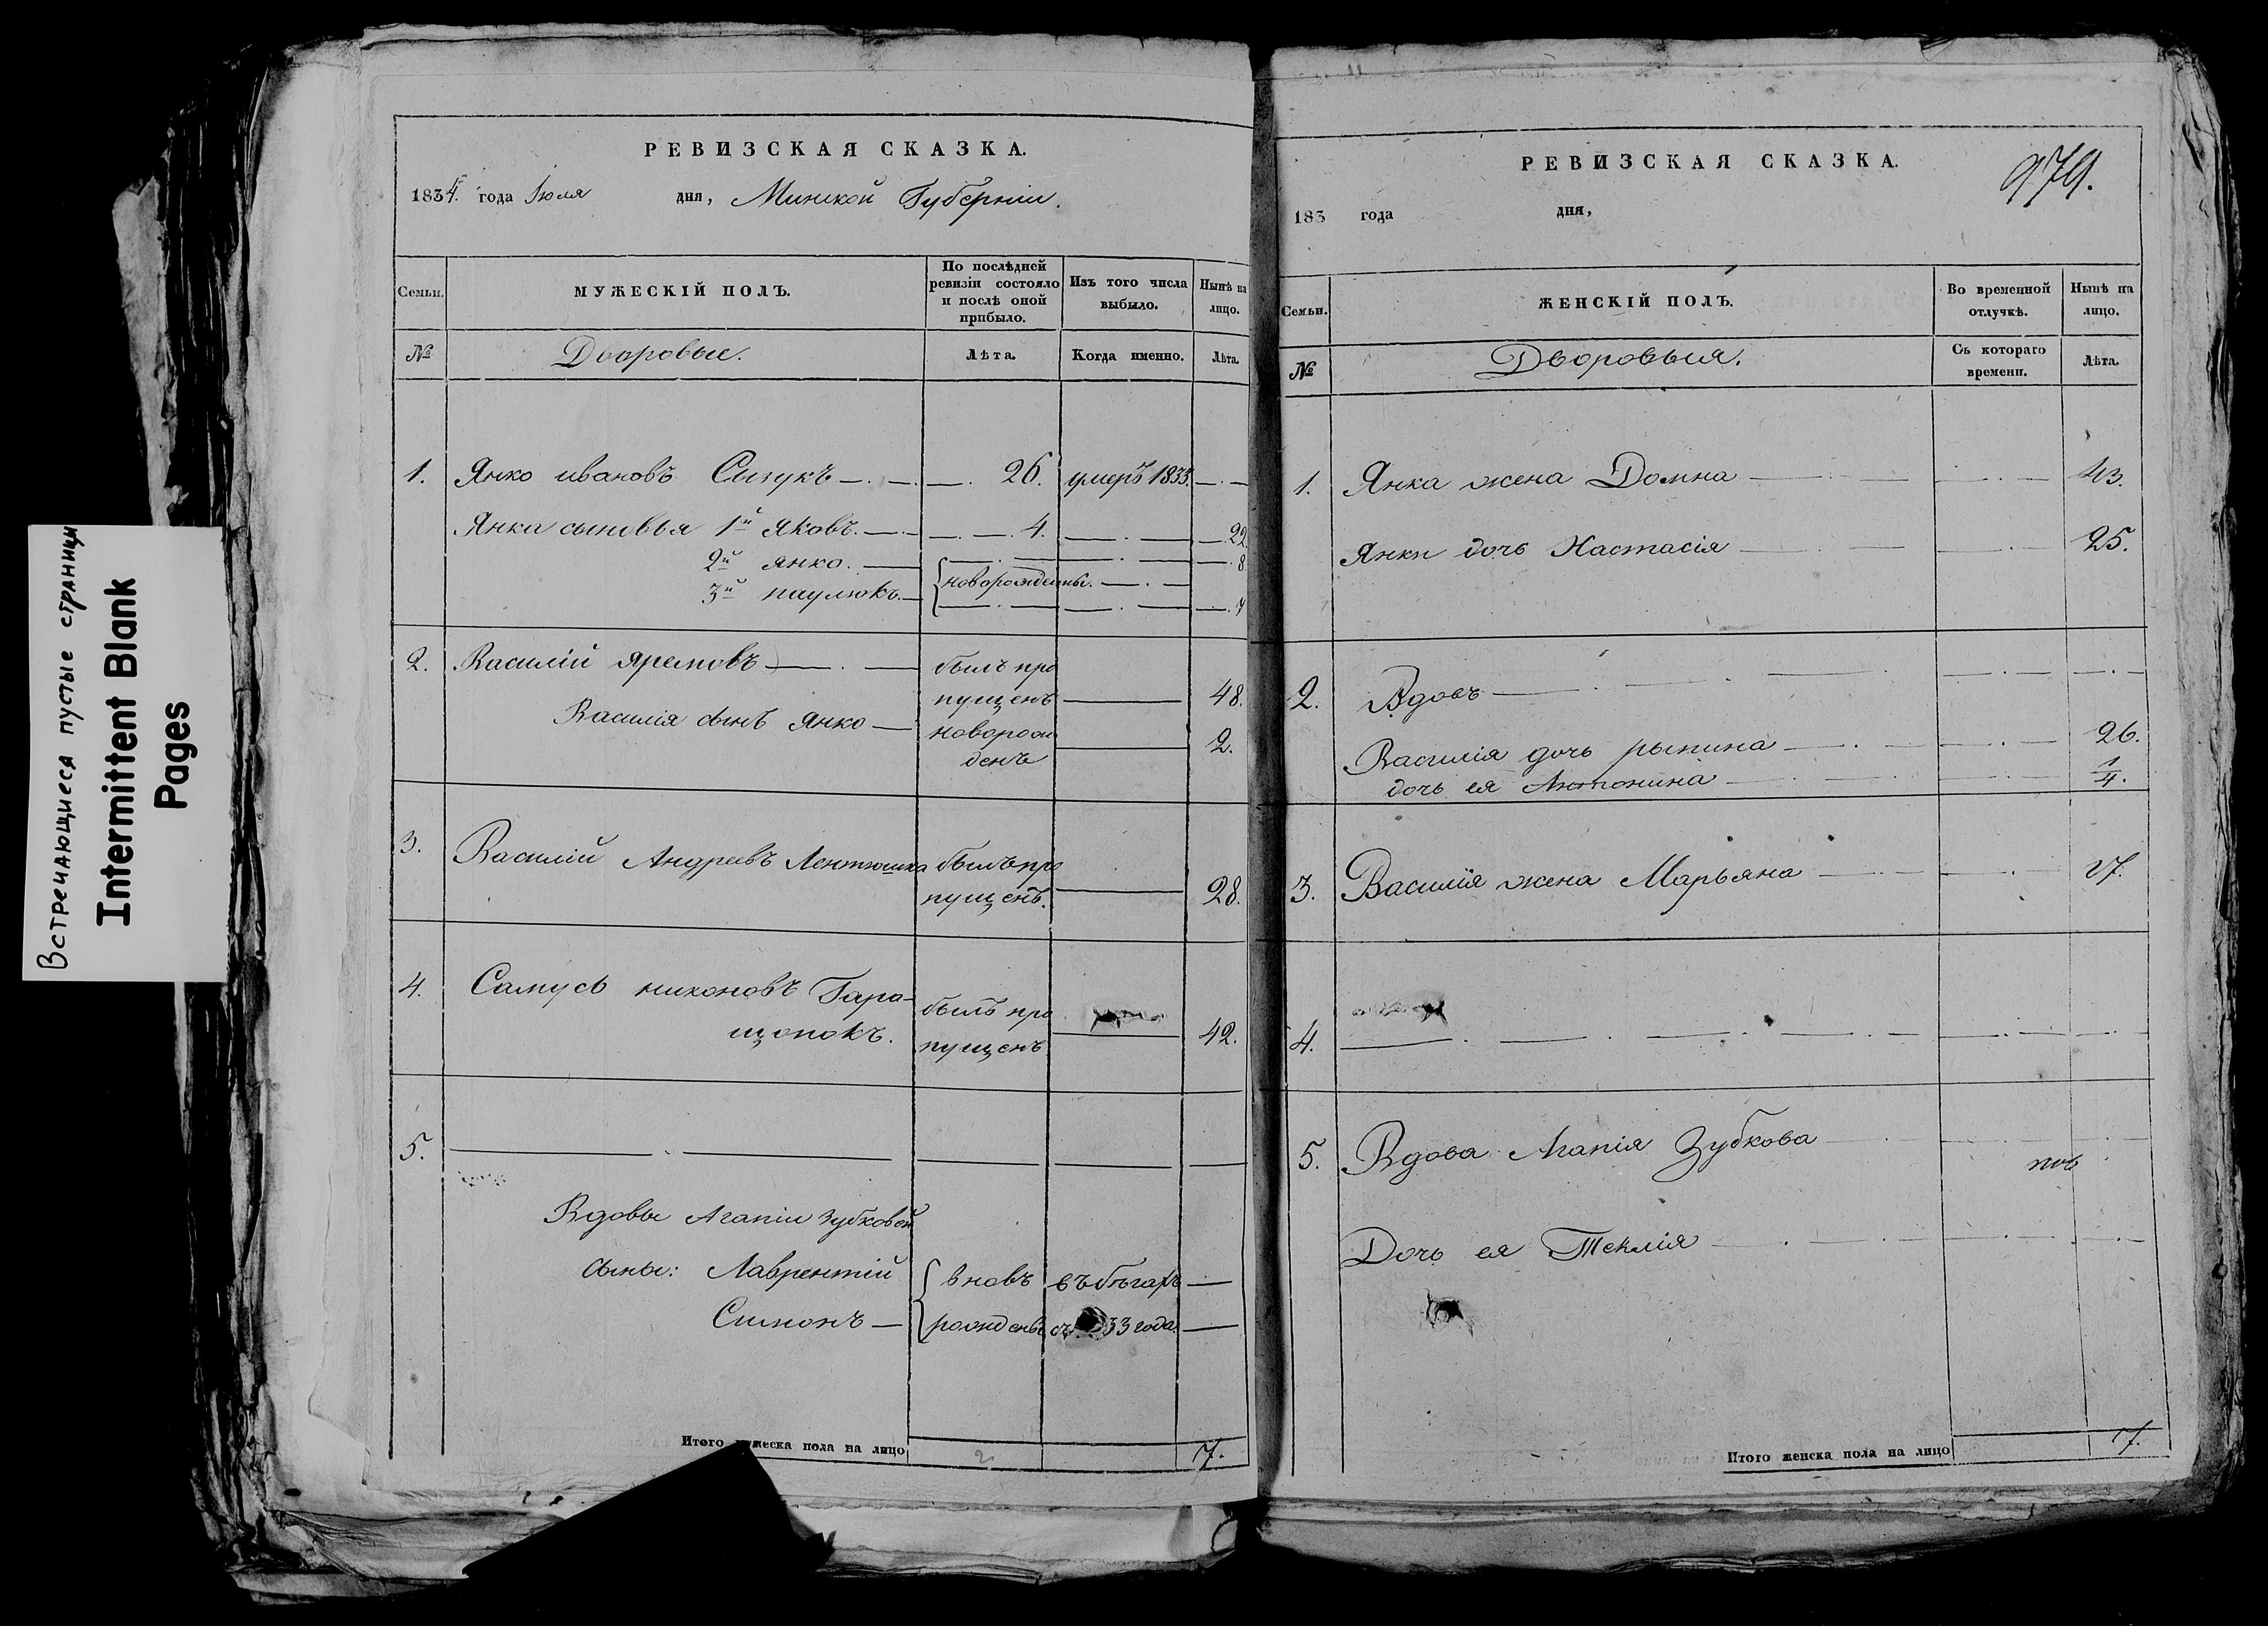 Встречающиеся пустые страницы
Intermittent Blank
Pages
РЕВИЗСКАЯ СКАЗКА.
1834. года Іюля дня, Минской Губерніи.
Семьи.
МУЖЕСКІЙ ПОЛЪ.
По послѣдней
ревизіи состояло
и послѣ оной
прибыло.
Изъ того числа
выбыло.
Нынѣ на
лицо.
№
Дворовые.
Лѣта.
Когда именно.
Лѣта.
1. Янко ивановъ Сызукъ 26. умеръ 1833.
Янка сыновья 1й Яковъ. 4. 22.
2й янко. 8
новорожденны.
3й паулюкъ. 7
2. Василій яремовъ былъ про
пущенъ 48.
Василія сынъ янко новорож
денъ 2.
3. Василій Андреевъ Лентюшка былъ про
пущенъ. 28.
4. Самусь никоновъ Гара-
щонокъ.
былъ про
пущенъ 42.
5.
Вдовы Агапіи Зубковой
сыны: Лаврентій вновь въ бѣгахъ
Симонъ рождены съ 33 года.
Итого мужеска пола на лицо 2 7.
РЕВИЗСКАЯ СКАЗКА.
979.
183 года дня,
Семьи.
ЖЕНСКІЙ ПОЛЪ.
Во временной
отлучкѣ.
Нынѣ на
лицо.
№
Дворовыя.
Съ котораго
времени.
Лѣта.
1. Янка жена Домна 43.
Янки дочь Настасія 25.
2. Вдовъ
Василія дочь рыпина 26.
дочь ея Антонина 1/4.
3. Василія жена Марьяна 27.
4.
5. Вдова Агапія Зубкова
Дочь ея Теклія
Итого женска пола на лицо 7.